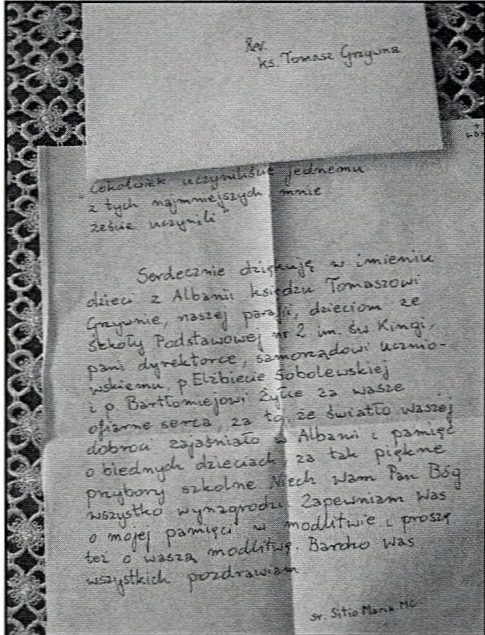 Rev.
ks. Tomasz Grzywna
"Cokolwiek uczyniliście jednemu
z tych najmniejszych mnie
żeście uczynili"
Serdecznie dziękuję w imieniu
dzieci z Albanii księdzu Tomaszowi
Grzywnie, naszej parafii, dzieciom ze
Szkoły Podstawowej nr 2 im. św Kingi,
pani dyrektorce, samorządowi ucznio-
wskiemu, p. Elżbiecie Sobolewskiej
i p. Bartłomiejowi Żyłce za wasze
ofiarne serca, za to, że światło waszej
dobroci zajaśniało w Albanii i pamięć
o biednych dzieciach, za tak piękne
przybory szkolne Niech Wam Pan Bóg
wszystko wynagrodzi Zapewniam Was
o mojej pamięci w modlitwie i proszę
też o waszą modlitwę. Bardzo Was
wszystkich pozdrawiam
sr. Sitio Maria MC